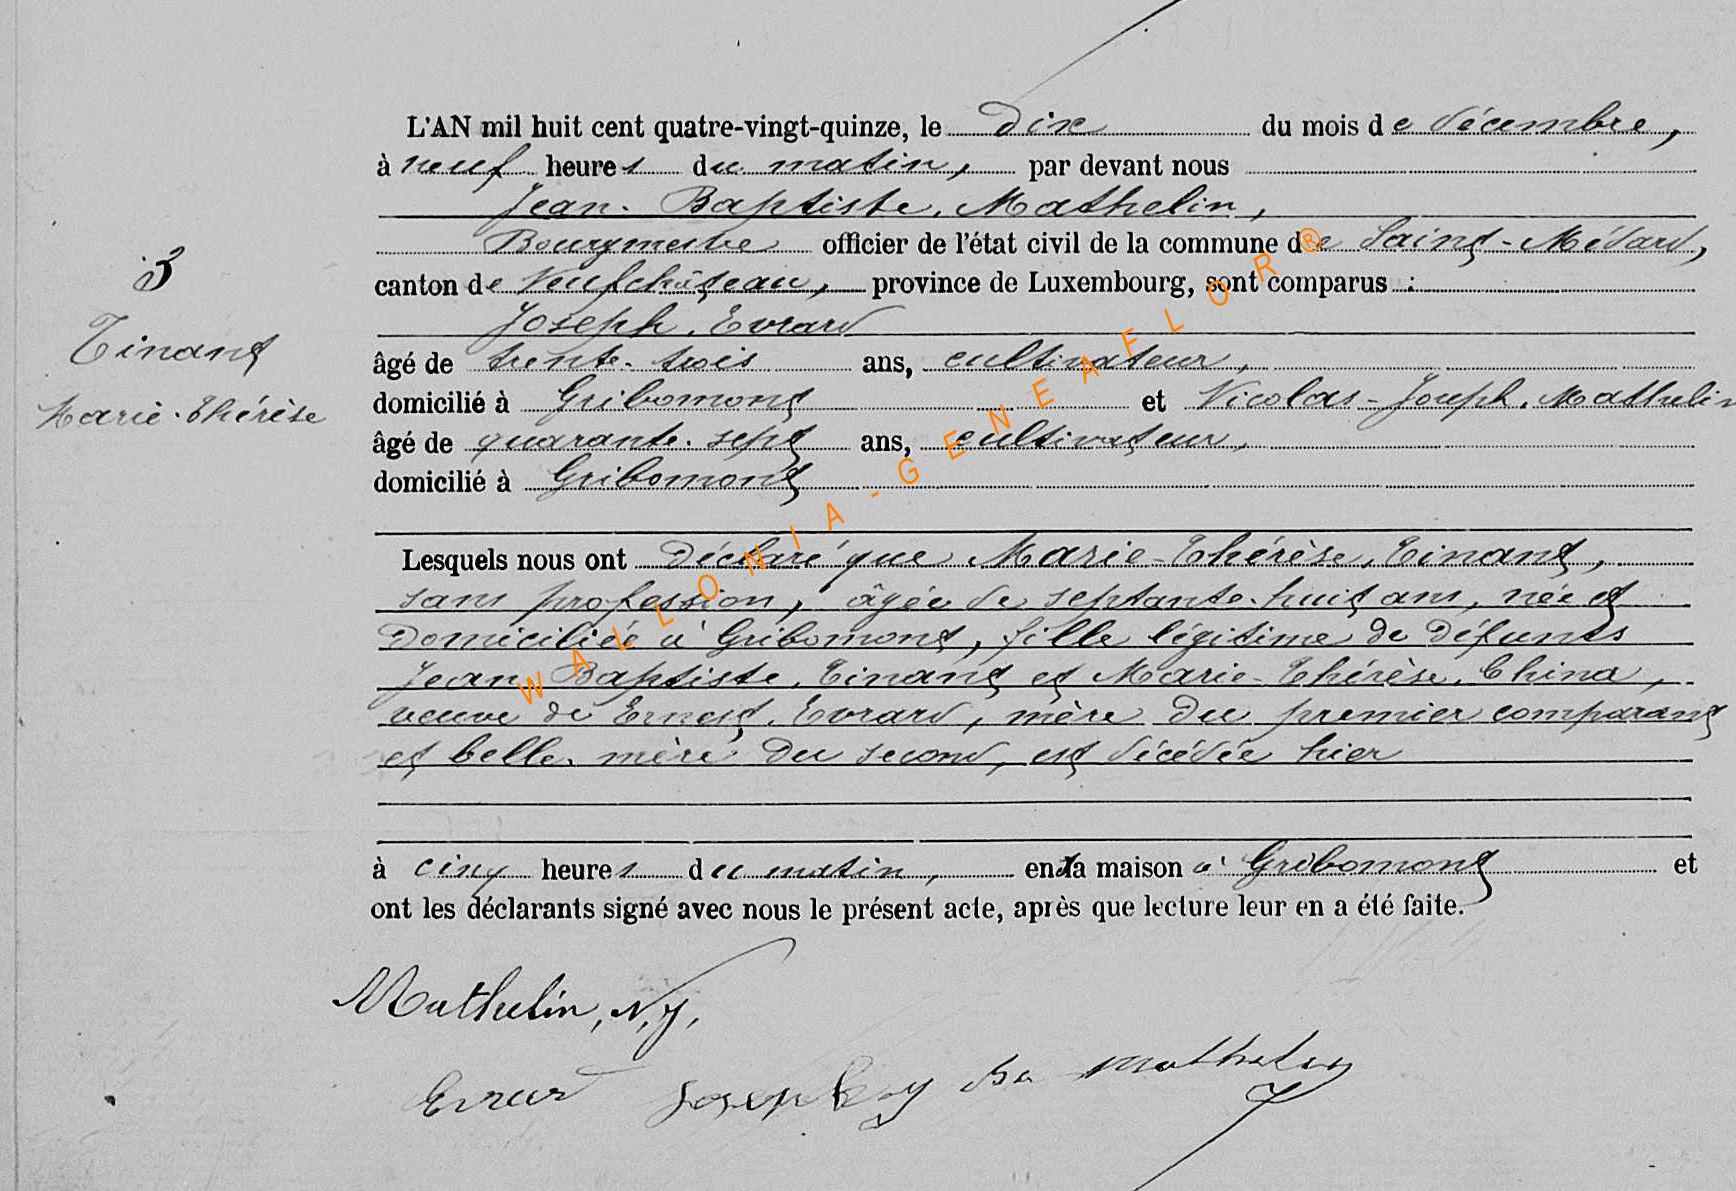 L'AN mil huit cent quatre-vingt-quinze, le dix du mois de décembre,
à neuf heures du matin, par devant nous
Jean-Baptiste, Mathelin,
Bourgmestre officier de l'état civil de la commune de Saint-Médard,
canton de Neufchâteau, province de Luxembourg, sont comparus :
Joseph, Evrard
âgé de trente-trois ans, cultivateur,
domicilié à Gribomont et Nicolas-Joseph, Mathelin
âgé de quarante-sept ans, cultivateur,
domicilié à Gribomont
Lesquels nous ont déclaré que Marie-Thérèse, Tinant,
sans profession, âgée de septante-huit ans, née et
domiciliée à Gribomont, fille légitime de défunts
Jean Baptiste, Tinant et Marie-Thérèse, China,
veuve de Ernest, Evrard, mère du premier comparant
et belle-mère du second, est décédée hier
à cinq heures du matin, en la maison à Gribomont et
ont les déclarants signé avec nous le présent acte, après que lecture leur en a été faite.
Mathelin, N, J,
Evrard Joseph J Ba Mathelin
3
Tinant
Marie-Thérèse
WALLONIA-GENEAFLOR®